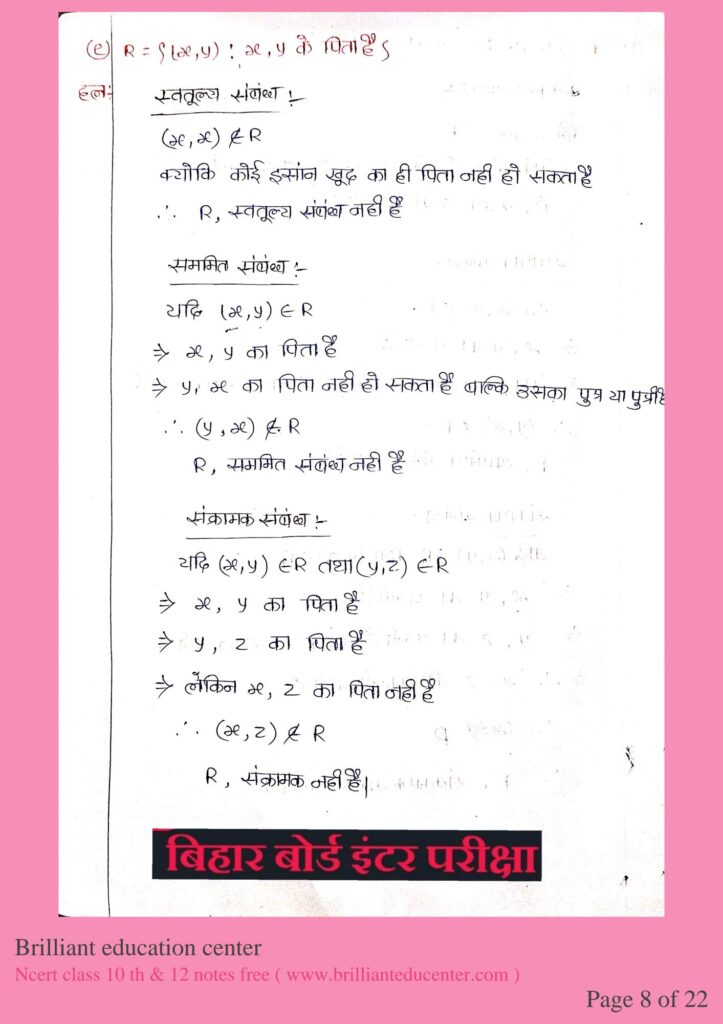 (e) R = {(x,y) : x, y के पिता है}
हलः
स्वतूल्य संबंध :-
(x,x) ∉ R
क्योकि कोई इसांन खूद का ही पिता नही हो सकता है
∴ R, स्वतूल्य संबंध नही है
सममित संबंध :-
यदि (x,y) ∈ R
⇒ x, y का पिता है
⇒ y, x का पिता नही हो सकता है बाल्कि उसका पुत्र या पुत्री है
∴ (y,x) ∉ R
R, सममित संबंध नही है
संक्रामक संबंध :-
यदि (x,y) ∈R तथा (y,z) ∈R
⇒ x, y का पिता है
⇒ y, z का पिता है
⇒ लेकिन x, z का पिता नही है
∴ (x,z) ∉ R
R, संक्रामक नही है।
बिहार बोर्ड इंटर परीक्षा
Brilliant education center
Ncert class 10 th & 12 notes free ( www.brillianteducenter.com )
Page 8 of 22